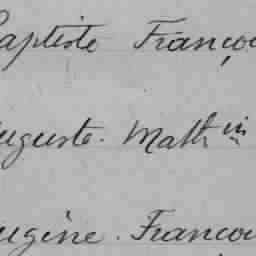 aptiste Françoi
uguste. Math in
ugène. Françoi